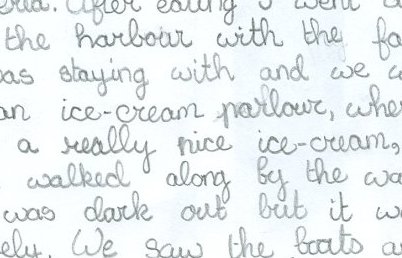 eria. After eating I went
the harbour with the fa
as staying with and we
an ice-cream parlour, whe
a really nice ice-cream,
walked along by the wa
was dark out but it w
ely. We saw the boats a